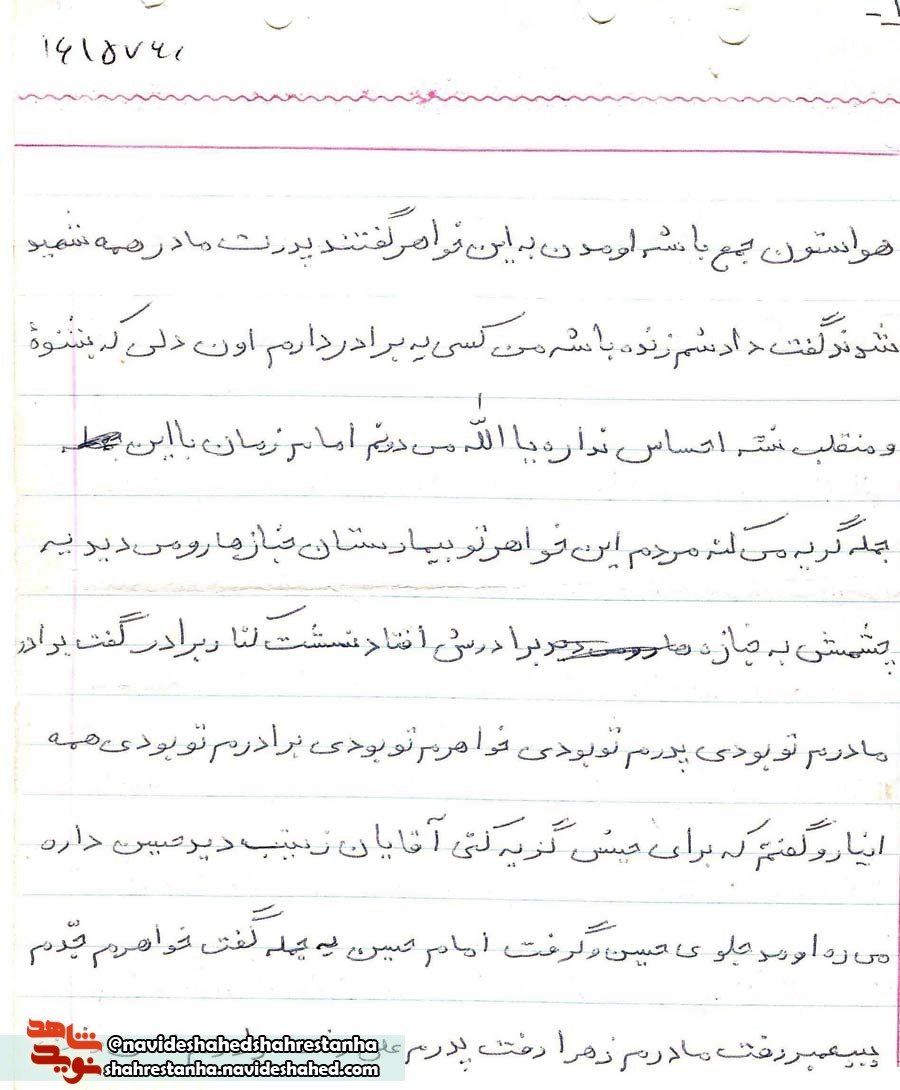 ۱-
۱۶۱۵۷۶۱
هواستون جمع باشه اومدن به این خواهر گفتند پدرت مادر همه شهید
شدند گفت داداشم زنده باشه من کسی یه برادر دارم اون دلی که بشنوهٔ
و منقلب نشه احساس نداره یا اللّه می دونم امام زمان با این
جمله گریه می کنه مردم این خواهر تو بیمارستان جنازها رو می دید یه
چشمش به جنازه برادرش افتاد نشست کنار برادر گفت برادر
مادرم تو بودی پدرم تو بودی خواهرم تو بودی برادرم تو بودی همه
اینارو گفتم که برای حسین گریه کنی آقایان زینب دید حسین داره
می ره اومد جلوی حسین و گرفت امام حسین یه جمله گفت خواهرم جدّم
پیغمبر رفت مادرم زهرا رفت پدرم علی
نوید شاهد
@navideshahedshahrestanha
shahrestanha.navideshahed.com